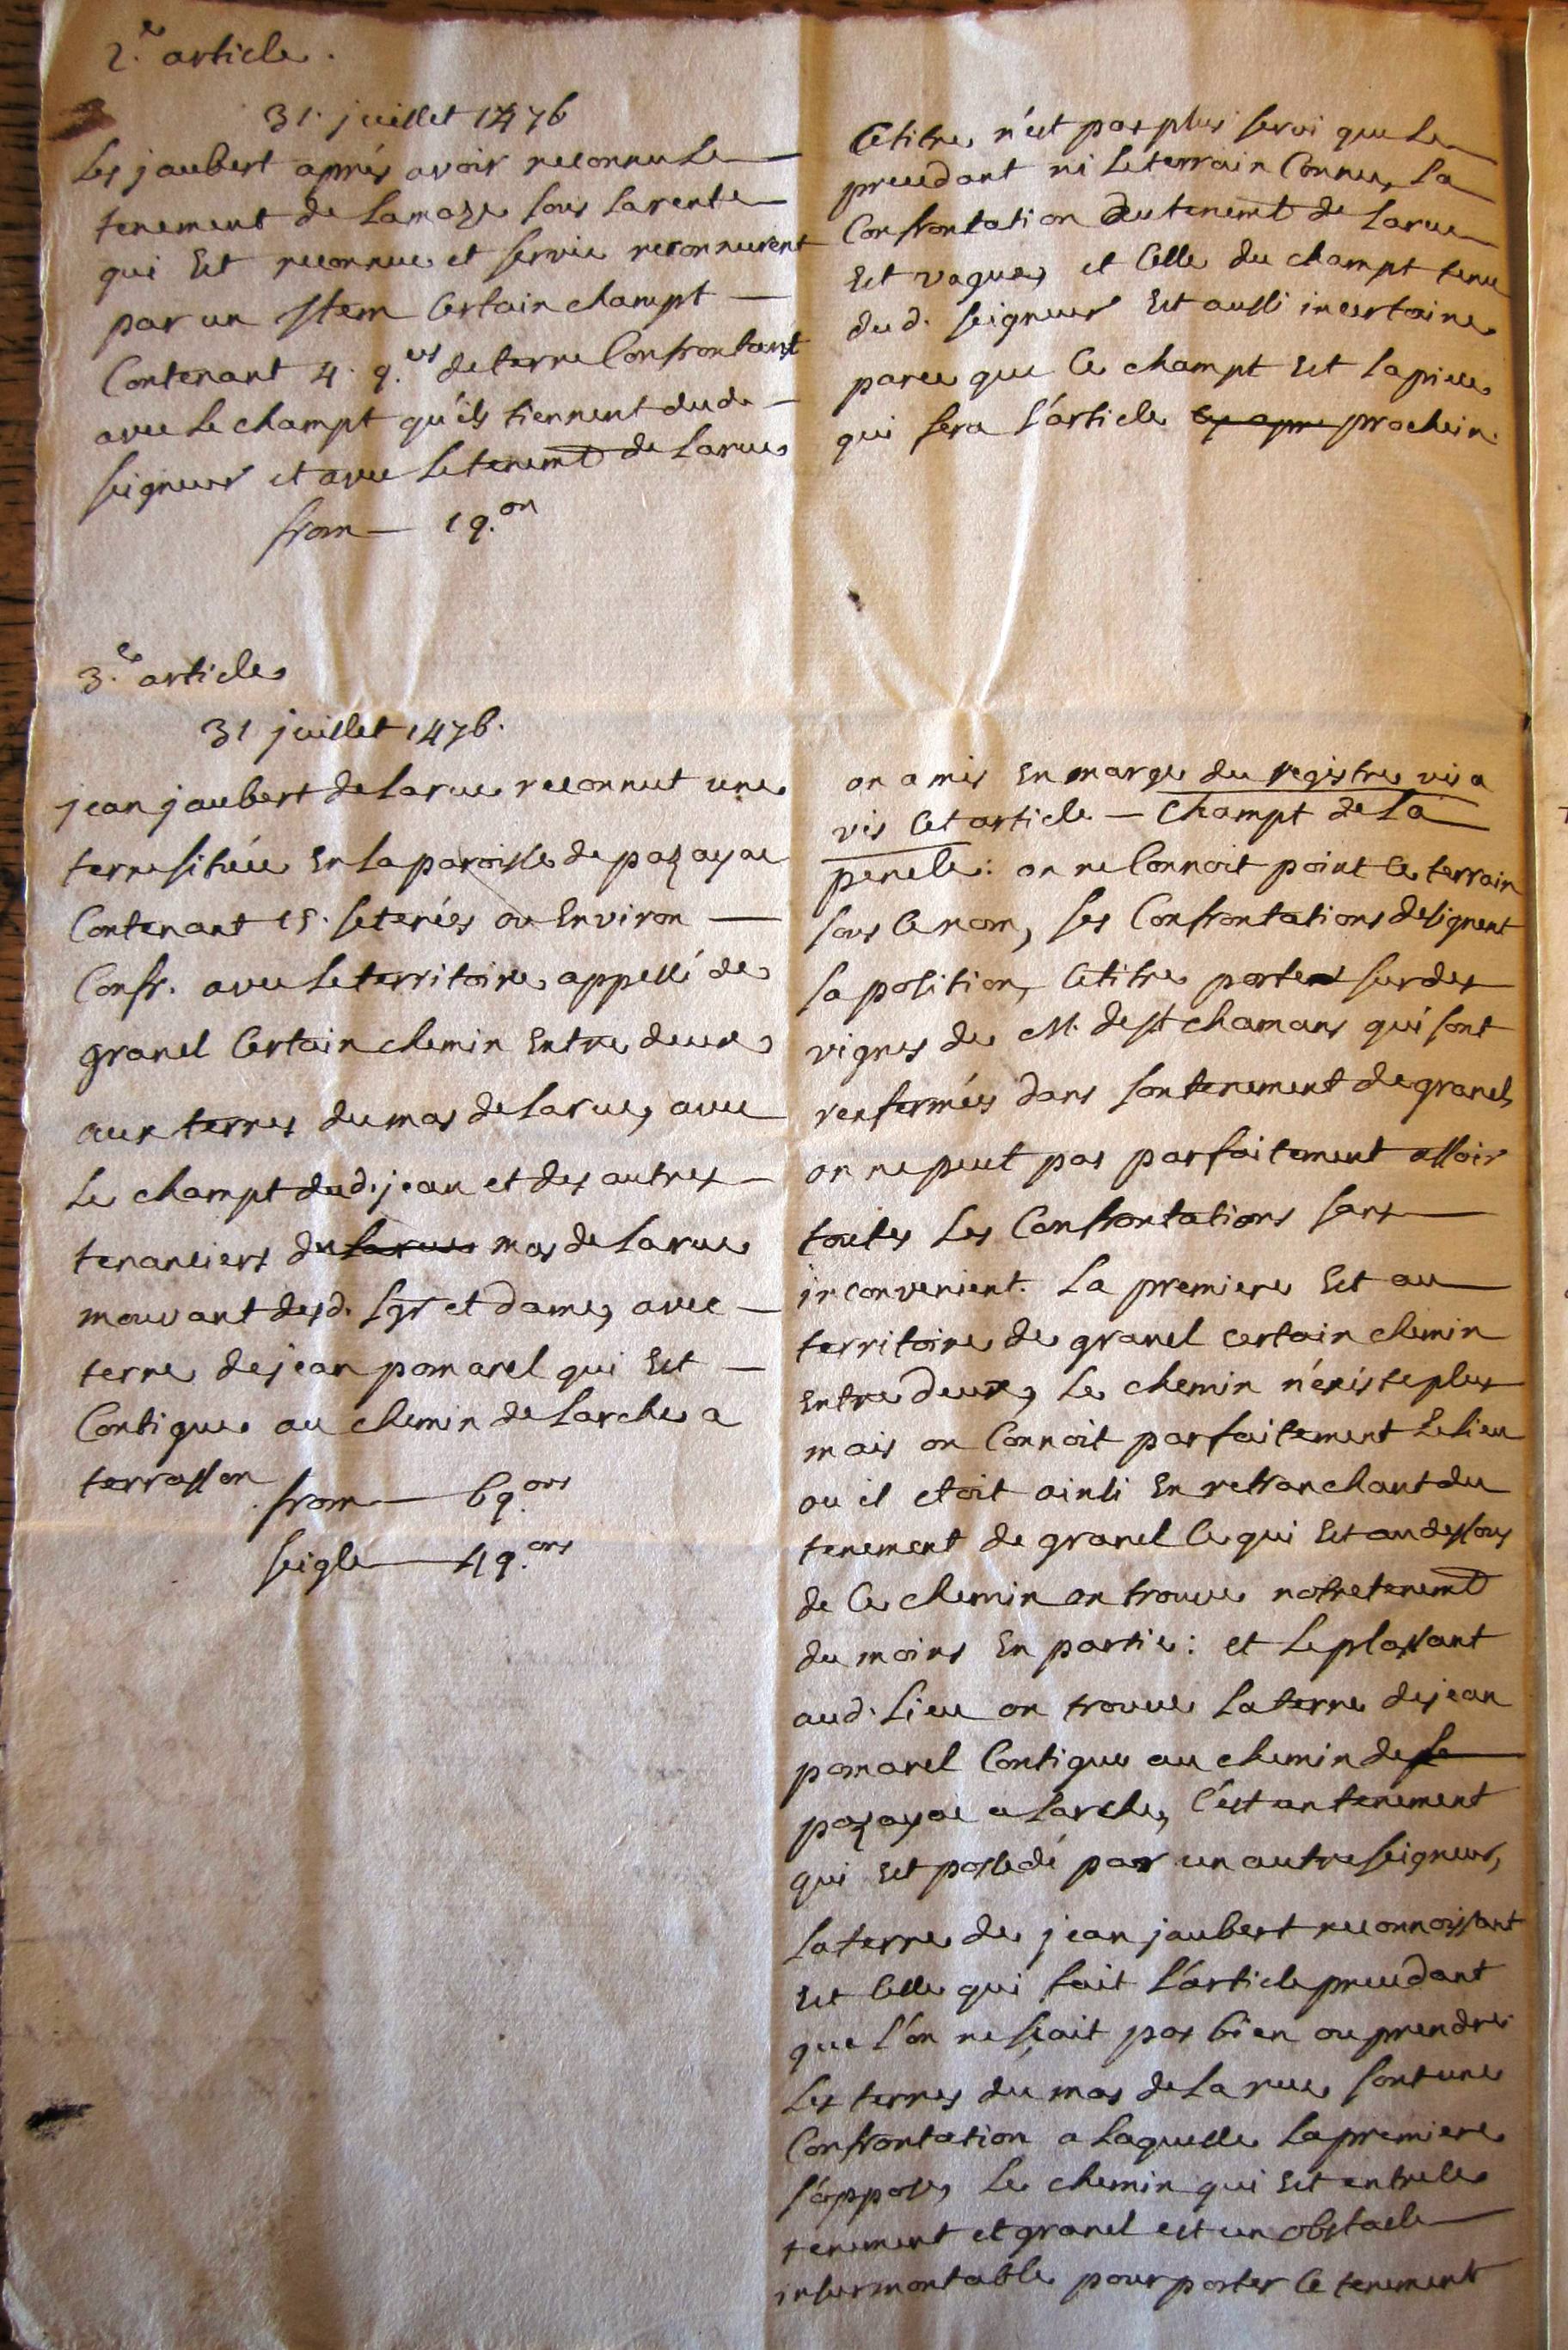 2.e article.
31. juillet 1476
Les jaubert aprés avoir reconnu Le
tenement de Lamaze sous La rente
qui Est reconnue et servie reconnurent
par un Item Certain champt
Contenant 4. q.es de terre Confrontant
avec Le champt qu'ils tiennent dud.
seigneur et avec Le tenemt de Larue
from — 1 q.on
Ce titre n'est pas plus servi que Le
precedant ni Le terrain Connu, La
Confrontation du tenemt de Larue
Est vague, et Celle du champt tenu
dud. seigneur Est aussi incertaine
parce que Ce champt Est La piece
qui sera L'article cy apre prochein.
3.e article
31 juillet 1476.
jean jaubert de Larue reconnut une
terre située En La paroisse de pazayac
Contenant 15. seterées ou Environ
Confr. avec Le territoire appellé de
granel Certain chemin Entre deux
aux terres du mas de Larue, avec
Le champt dud. jean et des autres
tenanciers du Larue mas de Larue
mouvant desd. sgr et dame, avec
terre de jean pomarel qui Est
Contigue au chemin de Larche a
terrasson
from — 6 q.ons
seigle — 4 q.ons
on a mis En marge du registre vis a
vis Cet article — Champt de La
penele: on ne Connoit point Ce terrain
sous Ce nom, ses Confrontations designent
sa position, Ce titre porte sur des
vignes de M. de st chamans qui sont
renfermées dans son tenement de granel,
on ne peut pas parfaitement assoir
toutes Les Confrontations sans
inconvenient. La premiere Est au
territoire de granel certain chemin
Entre deux, Le chemin n'éxiste plus
mais on Connoit parfaitement Le Lieu
ou il etoit ainsi En retranchant du
tenement de granel Ce qui Est au dessous
de Ce chemin on trouve notre tenemt
du moins En partie: et Le plassant
aud. Lieu on trouve La terre de jean
pomarel Contigue au chemin de
pazayac a Larche, C'est un tenement
qui Est possedé par un autre seigneur,
La terre de jean jaubert reconnoissant
Est Celle qui fait L'article precedant
que L'on ne sçait pas bien ou prendre
Les terres du mas de La rue sont une
Confrontation a Laquelle La premiere
s'oppose, Le chemin qui Est entre Le
tenement et granel est un obstacle
insurmontable pour porter Ce tenement